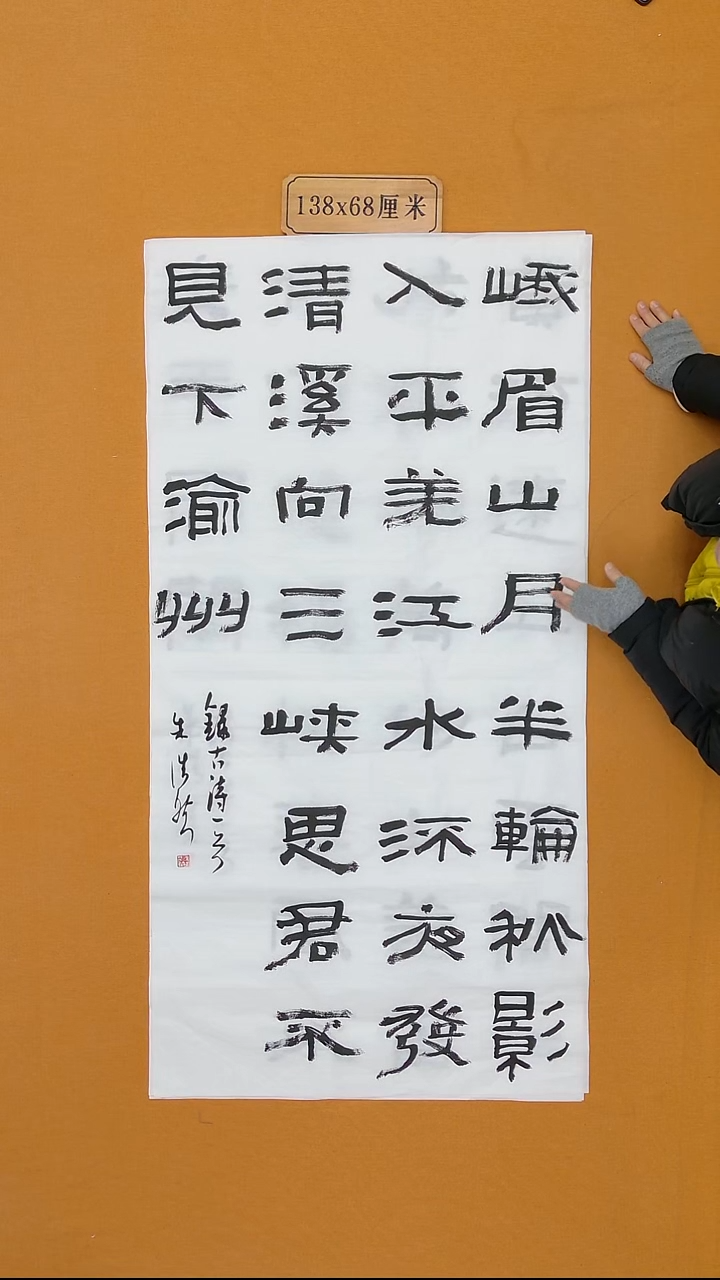 138x68厘米
峨眉山月半輪秋影
入平羌江水流夜發
清溪向三峡思君不
見下渝州
錄古詩一首